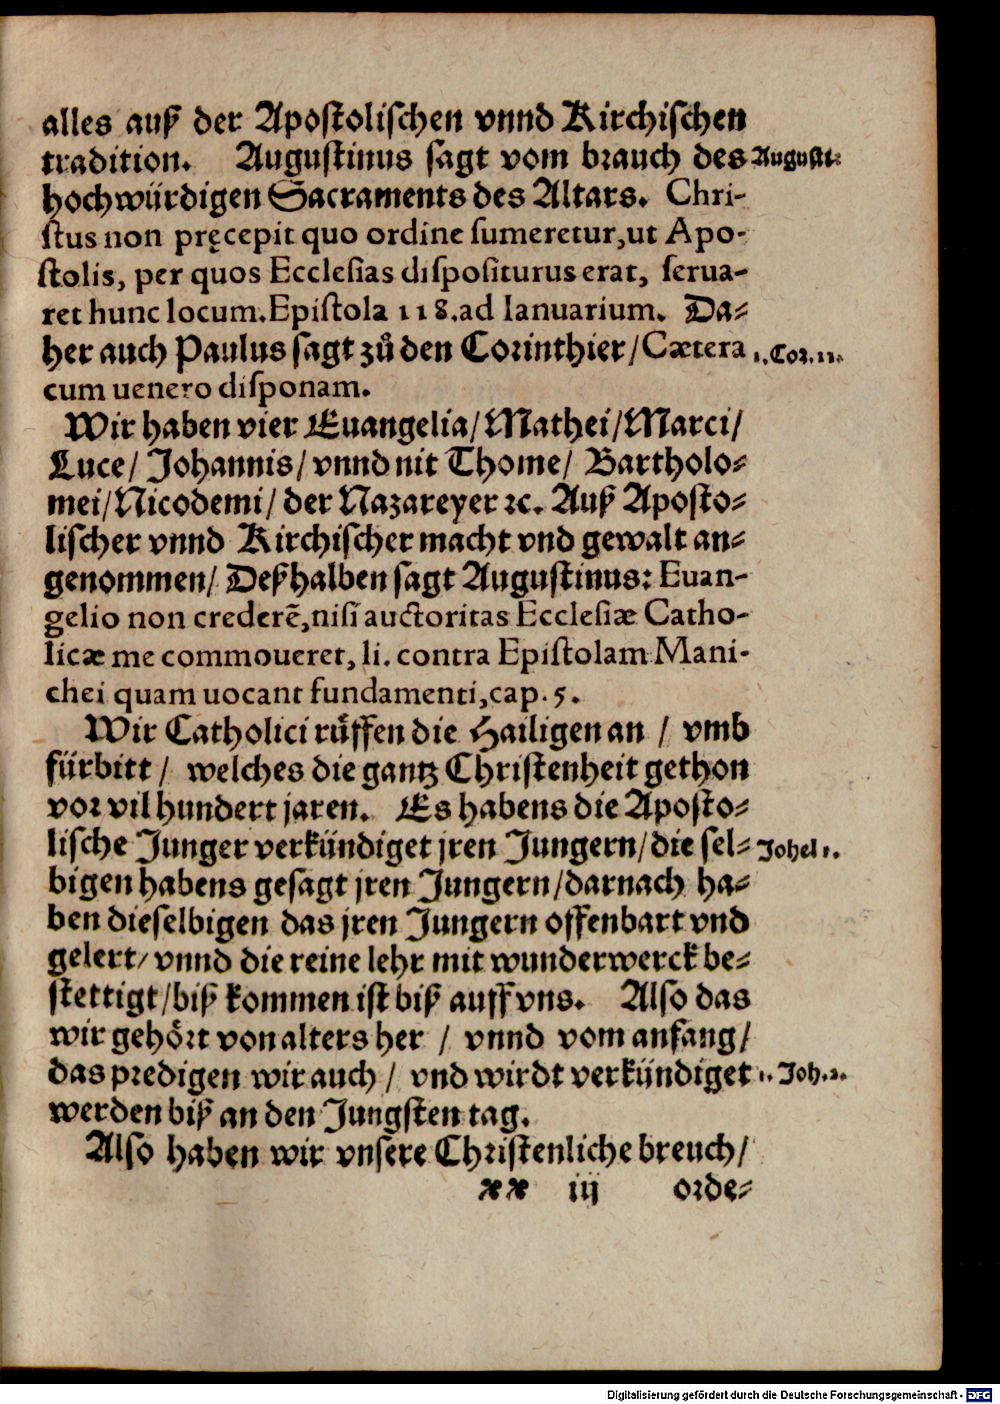 alles auß der Apostolischen vnnd Kirchischen
tradition. Augustinus sagt vom brauch des Augusti:
hochwürdigen Sacraments des Altars. Chri-
stus non pręcepit quo ordine sumeretur, ut Apo-
stolis, per quos Ecclesias dispositurus erat, serua-
ret hunc locum. Epistola 118. ad Ianuarium. Da-
her auch Paulus sagt zů den Corinthier/ Cætera 1. Cor. 11.
cum uenero disponam.
Wir haben vier Euangelia/ Mathei/ Marci/
Luce/ Johannis/ vnnd nit Thome/ Bartholo-
mei/ Nicodemi/ der Nazareyer ꝛc. Auß Aposto-
lischer vnnd Kirchischer macht vnd gewalt an-
genommen/ Deßhalben sagt Augustinus: Euan-
gelio non crederẽ, nisi auctoritas Ecclesiæ Catho-
licæ me commoueret, li. contra Epistolam Mani-
chei quam uocant fundamenti, cap. 5.
Wir Catholici růffen die Hailigen an / vmb
fürbitt / welches die gantz Christenheit gethon
vor vil hundert jaren. Es habens die Aposto-
lische Junger verkündiget jren Jungern/ die sel- Johel 1.
bigen habens gesagt jren Jungern/ darnach ha-
ben dieselbigen das jren Jungern offenbart vnd
gelert/ vnnd die reine lehr mit wunderwerck be-
stettigt/ biß kommen ist biß auff vns. Also das
wir gehört von alters her / vnnd vom anfang/
das predigen wir auch / vnd wirdt verkündiget 1. Joh. 2.
werden biß an den Jungsten tag.
Also haben wir vnsere Christenliche breuch/
xx iij orde-
Digitalisierung gefördert durch die Deutsche Forschungsgemeinschaft - DFG